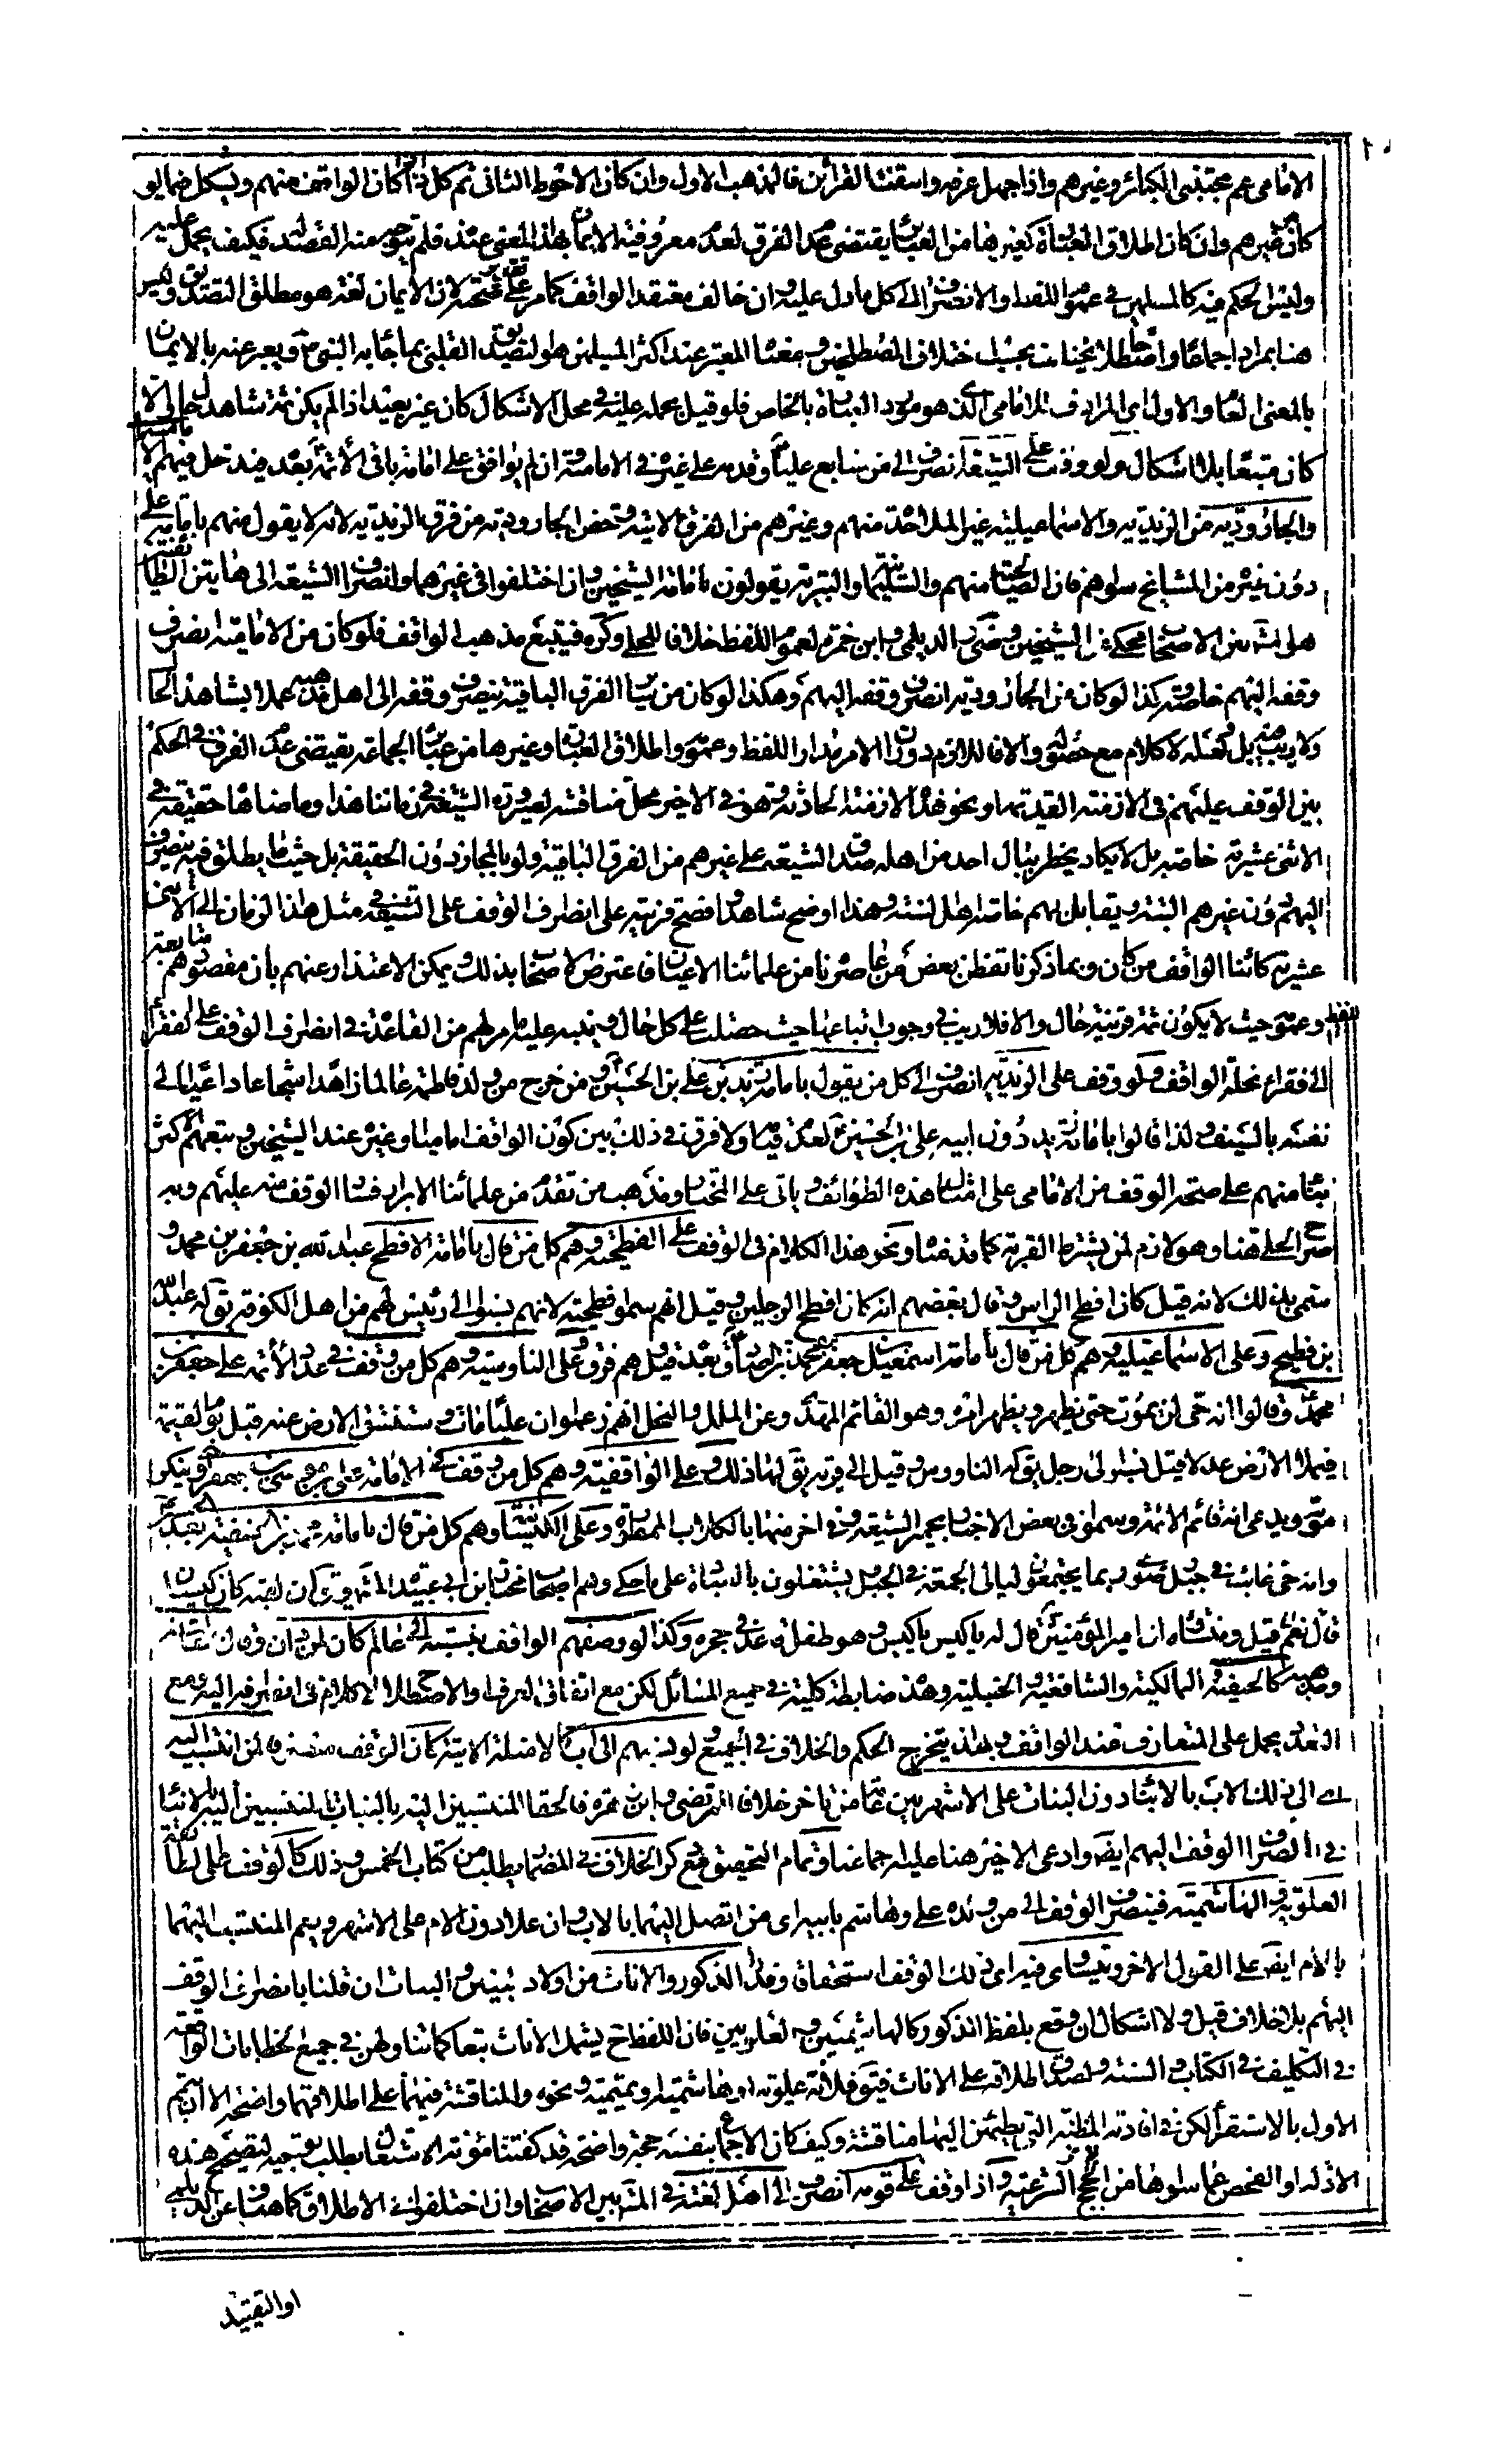 الامامى عم مجتنبى الكبائر وغيرهم واذا جهل عرفه وانتفت القرائن فالمذهب الاول وان كان الاحوط الثانى ثم كل ذا اذا كان الواقف منهم ويشكل فيما لو
كان من غيرهم وان كان اطلاق العبارة كغيرها من العبارات يقتضى عدم الفرق لعدم معروفية الايمان بهذا المعنى عنده فلم يتوجه منه القصد اليه فكيف يحمل عليه
وليس الحكم فيه كالمسلمين فى عموم اللفظ والانصراف الى كل ما دل عليه وان خالف معتقد الواقف كما مر على تقدير صحته لان الايمان لغة هو مطلق التصديق وليس
هنا بمراد اجماعا واصطلاحا بحسب اختلاف المصطلحين ومعناه المعتبر عند اكثر المسلمين هو التصديق القلبى بما جاء به النبى ص ويعبر عنه بالايمان
بالمعنى العام والاول اى المرادف للامامى الذى هو مورد العبارة بالخاص فلو قيل بحمله عليه فى محل الاشكال كان غير بعيد اذا لم يكن ثمة شاهد حال والا
كان متبعا بلا اشكال ولو وقف على الشيعة انصرف الى من شايع عليا ع وقدمه على غيره فى الامامة وان لم يوافق على امامة باقى الائمة بعده فيدخل فيهم الامامية
والجارودية من الزيدية والاسماعيلية غير الملاحدة منهم وغيرهم من الفرق الاتية وخص الجارودية من فرق الزيدية لانه لا يقول منهم بامامة على
دون غيره من المشايخ سواهم فان الصالحية منهم والسليمانية والبترية يقولون بامامة الشيخين وان اختلفوا فى غيرهما وانصراف الشيعة الى هاتين الطائفتين
هو المشهور بين الاصحاب محكى عن الشيخين وحكى الديلمى وابن حمزة لعموم اللفظ خلافا للحلى وكره فيتبع مذهب الواقف فلو كان من الامامية انصرف
وقفه اليهم خاصة وكذا لو كان من الجارودية انصرف وقفه اليهم وهكذا لو كان من سائر الفرق الباقية ينصرف وقفه الى اهل مذهبه عملا بشاهد الحال
ولا ريب فيه بل لعله لا كلام مع حصوله والا فاللازم دوران الامر مدار اللفظ وعمومه واطلاق العبارة وغيرها من عبارات الجماعة يقتضى عدم الفرق فى الحكم
بين الوقف عليهم فى الازمنة القديمة او نحو هذه الازمنة الحادثة وهو فى الاخير محل مناقشة لصيرورة الشيعة فى زماننا هذا وما ضاهاه حقيقة فى
الاثنى عشرية خاصة بل لا يكاد يخطر ببال احد من اهله صدق الشيعة على غيرهم من الفرق الباقية ولو بالمجاز دون الحقيقة بل حيث ما يطلق فيه ينصرف
اليهم دون غيرهم البتة ويقابل بهم خاصة اهل السنة وهذا اوضح شاهد وافصح قرينة على انصراف الوقف على الشيعة فى مثل هذا الزمان الى الاثنى
عشرية كائنا الواقف من كان وبما ذكرنا تفطن بعض من عاصرنا من علمائنا الاعيان فاعترض الاصحاب بذلك ويمكن الاعتذار عنهم بان مقصودهم متابعة
اللفظ وعمومه حيث لا يكون ثمة قرينة حال والا فلا ريب فى وجوب اتباعها حيث حصلت على كل حال وينبه عليه ما مر لهم من القاعدة فى انصراف الوقف على الفقراء
الى فقراء نحلة الواقف ولو وقف على الزيدية انصرف الى كل من يقول بامامة زيد بن على بن الحسين ع ومن خرج من ولد فاطمة عالما زاهدا شجاعا داعيا الى
نفسه بالسيف ولذا قالوا بامامة زيد دون ابيه على بن الحسين ع لعدم قيامه ولا فرق فى ذلك بين كون الواقف اماميا وغيره عند الشيخين وتبعهم الاكثر
بناء منهم على صحة الوقف من الامامى على امثال هذه الطوائف وياتى على المختار ومذهب من تقدم من علمائنا الابرار فساد الوقف منه عليهم وبه
صرح الحلى هنا وهو لازم لمن يشترط القربة كما قدمناه ونحو هذا الكلام فى الوقف على الفطحية وهم كل من قال بامامة الافطح عبد الله بن جعفر بن محمد ع
سمى بذلك لانه قيل كان افطح الراس وقال بعضهم انه كان افطح الرجلين وقيل انهم سموا فطحية لانهم نسبوا الى رئيس لهم من اهل الكوفة يقال له عبد الله
بن فطيح وعلى الاسماعيلية وهم كل من قال بامامة اسمعيل بن جعفر بن محمد الصادق ع بعده وقيل هم فرق وعلى الناوسية وهم كل من وقف فى عدد الائمة على جعفر بن
محمد ع وقالوا انه حى لن يموت حتى يظهر ويظهر امره وهو القائم المهدى وعن الملل والنحل انهم زعموا ان عليا مات وستنشق الارض عنه قبل يوم القيمة
فيملا الارض عدلا قيل نسبوا الى رجل يقال له ناووس وقيل الى قرية يقال لها ذلك وعلى الواقفية وهم كل من وقف فى الامامة على موسى بن جعفر ع وينكر
موته ويدعى انه قائم الائمة وسموا فى بعض الاخبار بحمير الشيعة وفى اخر منها بالكلاب الممطورة وعلى الكيسانية وهم كل من قال بامامة محمد بن الحنفية بعد الحسين ع
وانه حى غائب فى جبل رضوى ربما يجتمعون ليالى الجمعة فى الجبل يشتغلون بالعبادة على ما حكى وهم اصحاب مختار بن ابى عبيدة المشهور وكان لقبه كيسان
قيل ومنشاه ان امير المؤمنين ع قال له يا كيس يا كيس وهو طفل قاعد فى حجره وكذا لو وصفهم الواقف بنسبته الى عالم كان لمن دان بمقالته
ومذهبه كالحنفية والمالكية والشافعية والحنبلية وهذه ضابطة كلية فى جميع المسائل لكن مع اتفاق العرف والاصطلاح لا كلام فى انصرافه اليه ومع
التعدد يحمل على المتعارف عند الواقف وبهذا يتخرج الحكم والخلاف فى الجميع ولو نسبهم الى اب كالامثلة الاتية كان الوقف لمن انتسب اليه
اى الى ذلك الاب بالابناء دون البنات على الاشهر بين عامة من تاخر خلافا للمرتضى وابن زهرة فالحقا المنتسبين اليه بالبنات بالمنتسبين اليه بالابناء
فى انصراف الوقف اليهم ايضا وادعى الاخير هنا عليه اجماعنا وتمام التحقيق مع ذكر الخلاف فى المضمار يطلب من كتاب الخمس وذلك كالوقف على الطائفة
العلوية والهاشمية فينصرف الوقف الى من ولده على وهاشم بابيه اى من اتصل اليهما بالاب وان علا دون الام على الاشهر ويعم المنتسب اليهما
بالام ايضا على القول الاخر ويتساوى فيه اى فى ذلك الوقف استحقاقا وقدرا الذكور والاناث من اولاد البنين والبنات ان قلنا بانصراف الوقف
اليهم بلا خلاف قيل ولا اشكال ان وقع بلفظ الذكور كالهاشميين والعلويين فان اللفظ ح يشمل الاناث تبعا كما تناولهن فى جميع الخطابات الواقعة
فى التكليف فى الكتاب والسنة ولصدق اطلاقه على الاناث فيقال فلانة علوية او هاشمية او تميمية ونحوه والمناقشة فيهما على اطلاقهما واضحة الا ان يتمم
الاول بالاستقراء لكن فى افادته المظنة التى يطمئن اليها مناقشة وكيف كان الاجماع بنفسه حجة واضحة قد كفتنا مؤنة الاشتغال بطلب توجيه لتصحيح هذه
الادلة او الفحص عما سواها من الحجج الشرعية واذا وقف على قومه انصرف الى اهل لغته فى المشهور بين الاصحاب وان اختلفوا فى الاطلاق كما هنا وعن الديلمى
او التقييد